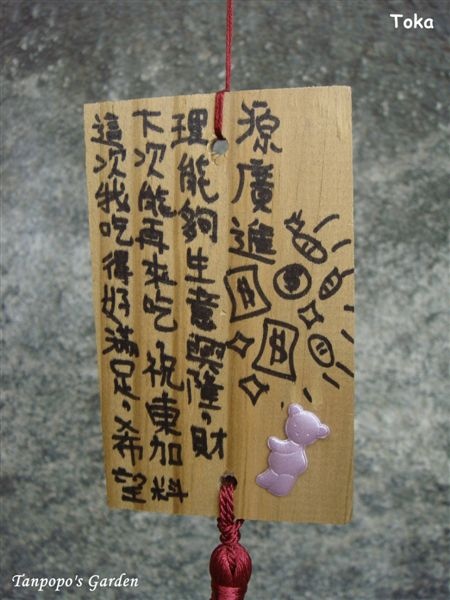 Toka
這次我吃得好滿足,希望
下次能再來吃,祝東加料
理能夠生意興隆,財
源廣進
Tanpopo's Garden